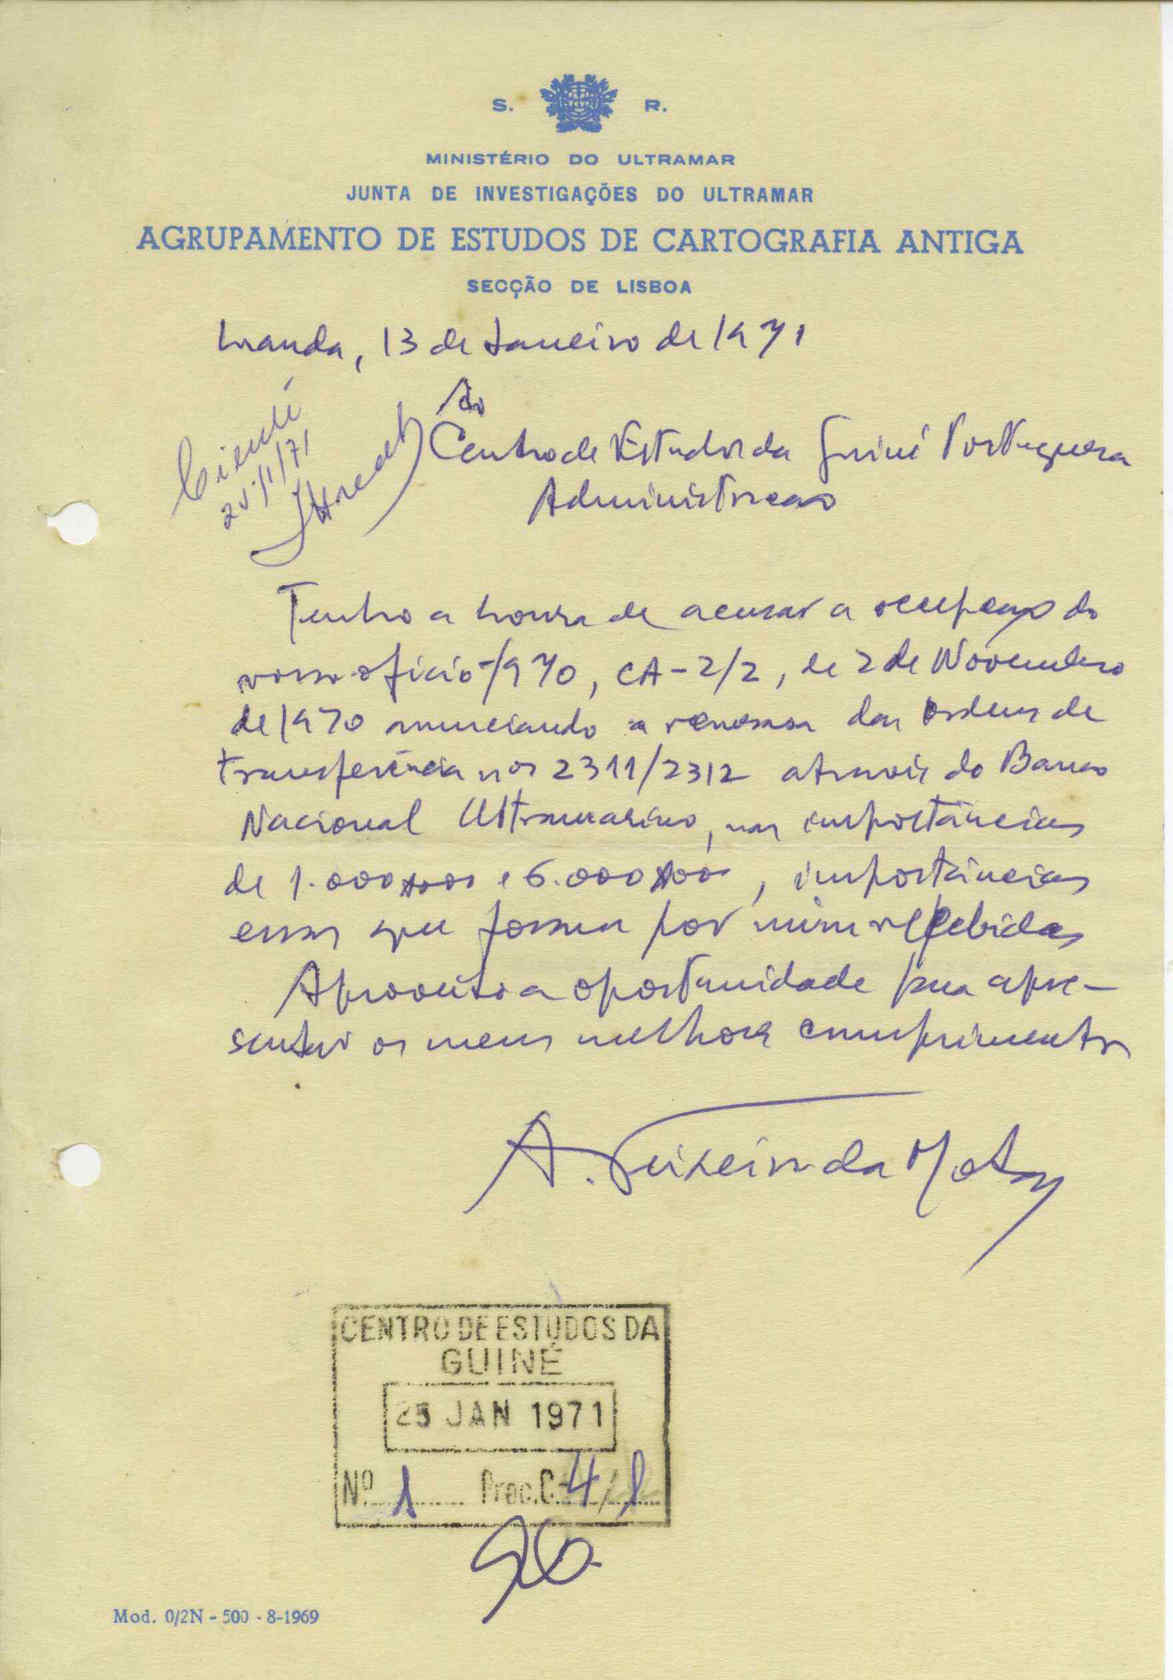 S. R.
MINISTÉRIO DO ULTRAMAR
JUNTA DE INVESTIGAÇÕES DO ULTRAMAR
AGRUPAMENTO DE ESTUDOS DE CARTOGRAFIA ANTIGA
SECÇÃO DE LISBOA
Luanda, 13 de Janeiro de 1971
Ao
Centro de Estudos da Guiné Portuguesa
Administracao
Ciente
25/1/71
Tenho a honra de acusar a recepçao do
vosso oficio /970, CA-2/2, de 2 de Novembro
de 1970 anunciando a remessa das ordens de
transferência nos 2311/2312 através do Banco
Nacional Ultramarino, nas importâncias
de 1.000$00 e 6.000$00, importâncias
essas que foram por mim recebidas
Aproveito a oportunidade para apre-
sentar os meus melhores cumprimentos
A. Teixeira da Mota
CENTRO DE ESTUDOS DA
GUINÉ
25 JAN 1971
Nº 1 Proc. C. 4/1
Mod. 0/2N - 500 - 8-1969